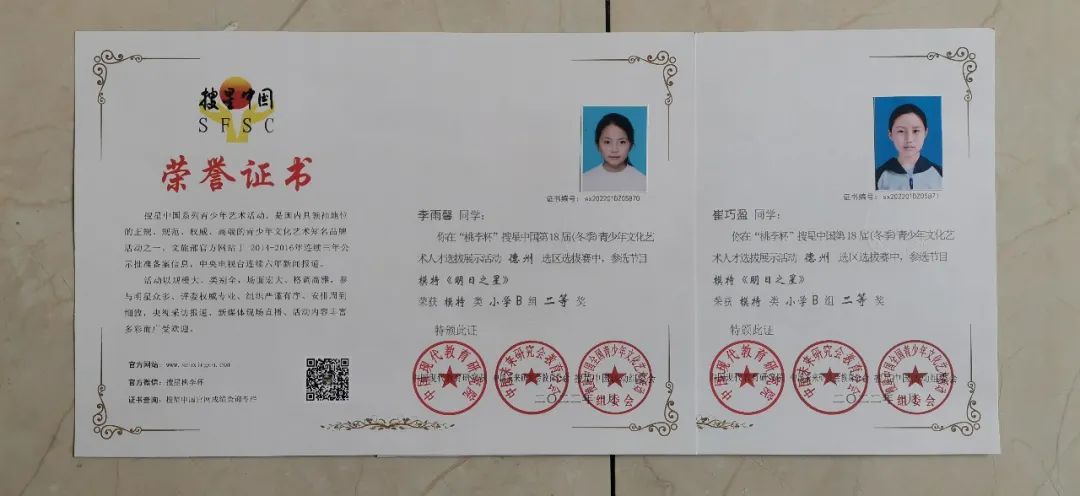 搜星中国
SFSC
荣誉证书
搜星中国系列青少年艺术活动，是国内具领袖地位
的正规、规范、权威、高端的青少年文化艺术知名品牌
活动之一，文旅部官方网站于 2014-2016年连续三年公
示批准备案信息，中央电视台连续六年新闻报道。
活动以规模大、类别全，场面宏大、格调高雅，参
与明星众多、评委权威专业、组织严谨有序、安排周到
细致，央视采访报道、新媒体现场直播、活动内容丰富
多彩而广受欢迎。
官方网站：
官方微信：搜星桃李杯
证书查询：搜星中国官网成绩查询专栏
证书编号：sx2022010205970
李雨馨 同学：
你在“桃李杯”搜星中国第18届(冬季)青少年文化艺
术人才选拔展示活动 德州 选区选拔赛中，参选节目
模特《明日之星》
荣获 模特 类 小学B组 二等 奖
特颁此证
中国现代教育研究院
组委会
二〇二二年 月
证书编号：sx2022010205971
崔巧盈 同学：
你在“桃李杯”搜星中国第18届(冬季)青少年文化艺
术人才选拔展示活动 德州 选区选拔赛中，参选节目
模特《明日之星》
荣获 模特 类 小学B组 二等 奖
特颁此证
中国现代教育研究院
组委会
二〇二二年 月